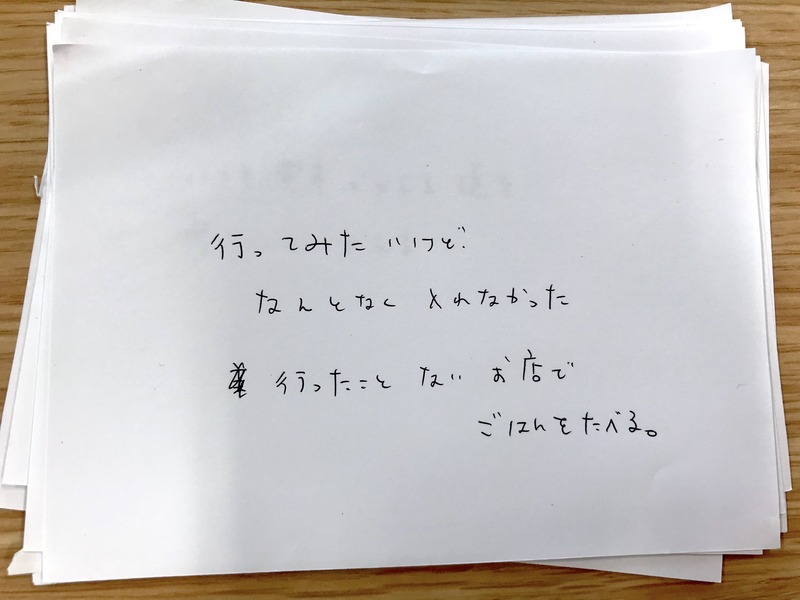 行ってみたいけど
なんとなく 入れなかった
行ったこと ない お店で
ごはんをたべる。